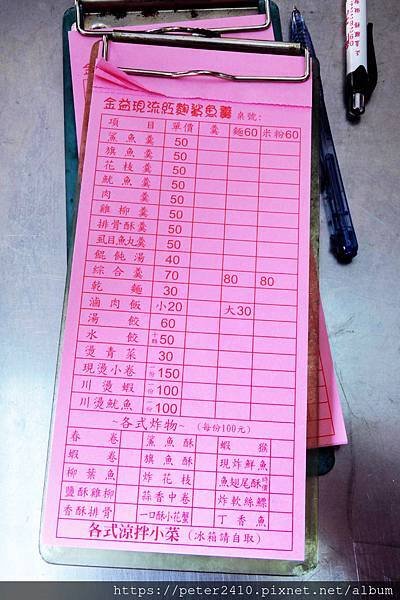 金益現流紅麴鯊魚羹 桌號:
項目 單價 羹 麵60 米粉60
鯊魚羹 50
旗魚羹 50
花枝羹 50
魷魚羹 50
肉羹 50
雞柳羹 50
排骨酥羹 50
虱目魚丸羹 50
餛飩湯 40
綜合羹 70 80 80
乾麵 30
滷肉飯 小20 大30
湯餃 60
水餃 十顆50
燙青菜 30
現燙小卷 一份150
川燙蝦 一份100
川燙魷魚 一份100
~各式炸物~ (每份100元)
春卷 鯊魚酥 蝦猴
蝦卷 旗魚酥 現炸鮮魚
柳葉魚 炸花枝 魚翅尾酥
鹽酥雞柳 蒜香中卷 炸軟絲鰾
香酥排骨 一口酥小花蟹 丁香魚
各式涼拌小菜 (冰箱請自取)
https://peter2410.pixnet.net/album